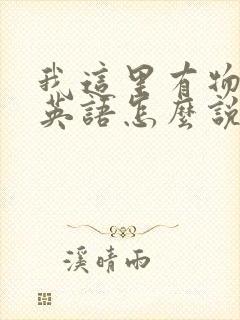 我這里有物
英語怎麼說
溪晴雨